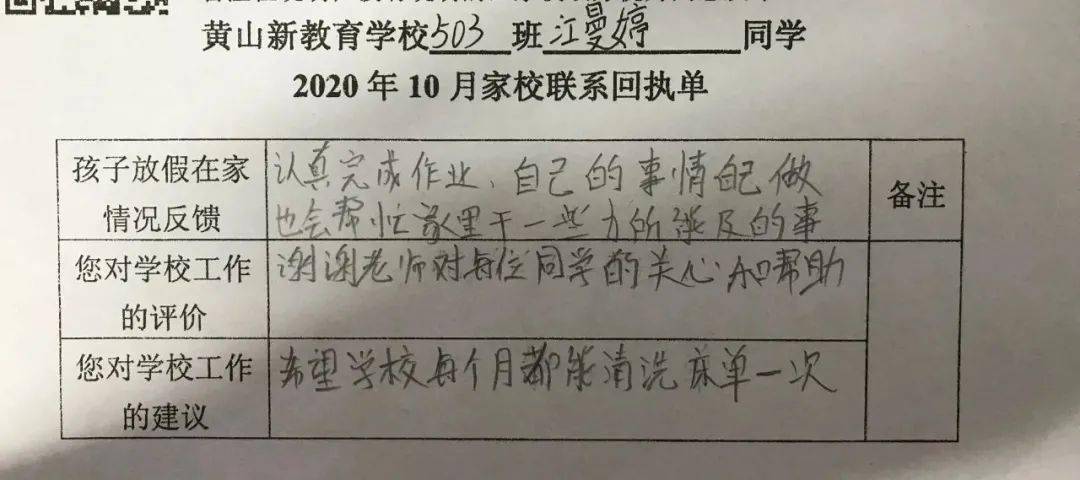 黄山新教育学校503班江曼婷同学
2020年10月家校联系回执单
孩子放假在家
情况反馈
认真完成作业、自己的事情自己做
也会帮忙家里干一些力所能及的事
备注
您对学校工作
的评价
谢谢老师对每位同学的关心和帮助
您对学校工作
的建议
希望学校每个月都能清洗床单一次